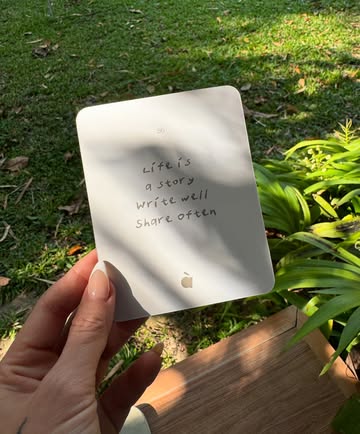 Life is
a story
Write well
Share often